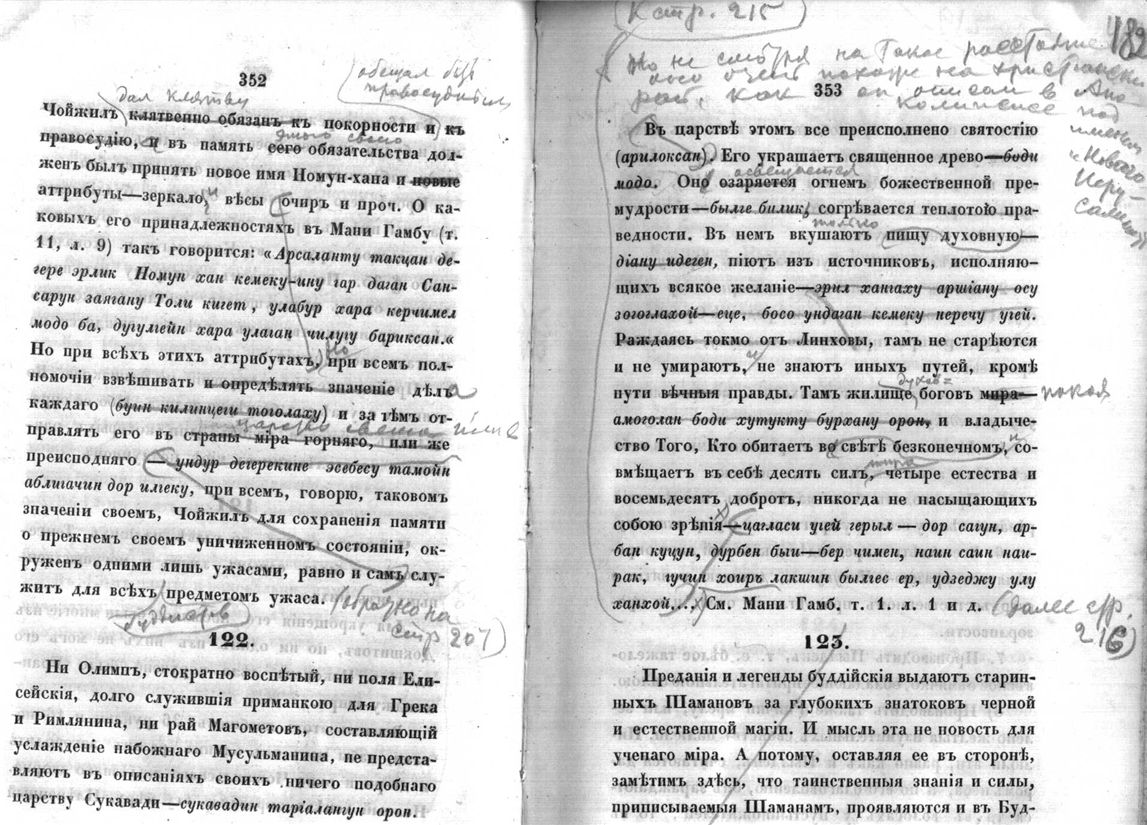 352
дал клятву
обещал быть
правосудным
Чойжилъ клятвенно обязанъ къ покорности и къ
правосудію, и въ память сего обязательства дол-
женъ былъ принять новое имя Номун-хана и новые
аттрибуты—зеркало, вѣсы очиръ и проч. О ка-
ковыхъ его принадлежностяхъ въ Мани Гамбу (т.
11, л. 9) такъ говорится: «Арсаланту такцан де-
гере эрлик Номун хан кемеку-ину гар даган Сан-
сарун заягану Толи кигет, улабур хара керчимел
модо ба, дугулгейн хара улаган чилугу бариксан.«
Но при всѣхъ этихъ аттрибутахъ, при всемъ пол-
номочіи взвѣшивать и опредѣлять значеніе дѣлъ
каждаго (буин килинцеги тоголаху) и за тѣмъ от-
правлять его въ страны міра горняго, или же
преисподняго — ундур дегерекине эсебесу тамойн
аблигачин дор илгеку, при всемъ, говорю, таковомъ
значеніи своемъ, Чойжилъ для сохраненія памяти
о прежнемъ своемъ уничиженномъ состояніи, ок-
руженъ одними лишь ужасами, равно и самъ слу-
житъ для всѣхъ предметомъ ужаса.
буддистов
(обратно на
стр 207)
122.
Ни Олимпъ, стократно воспѣтый, ни поля Ели-
сейскія, долго служившія приманкою для Грека
и Римлянина, ни рай Магометовъ, составляющій
услажденіе набожнаго Мусульманина, не предста-
вляютъ въ описаніяхъ своихъ ничего подобнаго
царству Сукавади—сукавадин таріалангун орон.
(К стр. 215)
182
Но не смотря на такое расстояние
оно очень похоже на христианск
рай, как он описан в Апо-
калипсисе под
именем
"Нового
Иеру-
салима"
353
Въ царствѣ этомъ все преисполнено святостію
(арилоксан). Его украшаетъ священное древо—боди
модо. Оно озаряется огнемъ божественной пре-
освещается
мудрости—былге билик, согрѣвается теплотою пра-
ведности. Въ немъ вкушаютъ пищу духовную—
только
діану идеген, піютъ изъ источниковъ, исполняю-
щихъ всякое желаніе—эрил хангаху аршіану осу
зогоглахой—еце, босо ундаган кемеку перечу угей.
Раждаясь токмо отъ Линховы, тамъ не старѣются
и не умираютъ, не знаютъ иныхъ путей, кромѣ
пути вѣчныя правды. Тамъ жилище боговъ мира—
духов=
покоя
амоголан боди хутукту бурхану орон, и владыче-
ство Того, Кто обитаетъ во свѣтѣ безконечномъ, со-
вмѣщаетъ въ себѣ десять силъ, четыре естества и
восемьдесятъ добротъ, никогда не насыщающихъ
собою зрѣнія—цагласи угей герыл — дор сагун, ар-
бан куцун, дурбен быи—бер чимен, наин саин наи-
рак, гучин хоиръ лакшин былгес ер, удзеджу улу
ханхой.... См. Мани Гамб. т. 1. л. 1 и д.
(далее стр.
216)
123.
Преданія и легенды буддійскія выдаютъ старин-
ныхъ Шамановъ за глубокихъ знатоковъ черной
и естественной магіи. И мысль эта не новость для
ученаго міра. А потому, оставляя ее въ сторонѣ,
замѣтимъ здѣсь, что таинственныя знанія и силы,
приписываемыя Шаманамъ, проявляются и въ Буд-